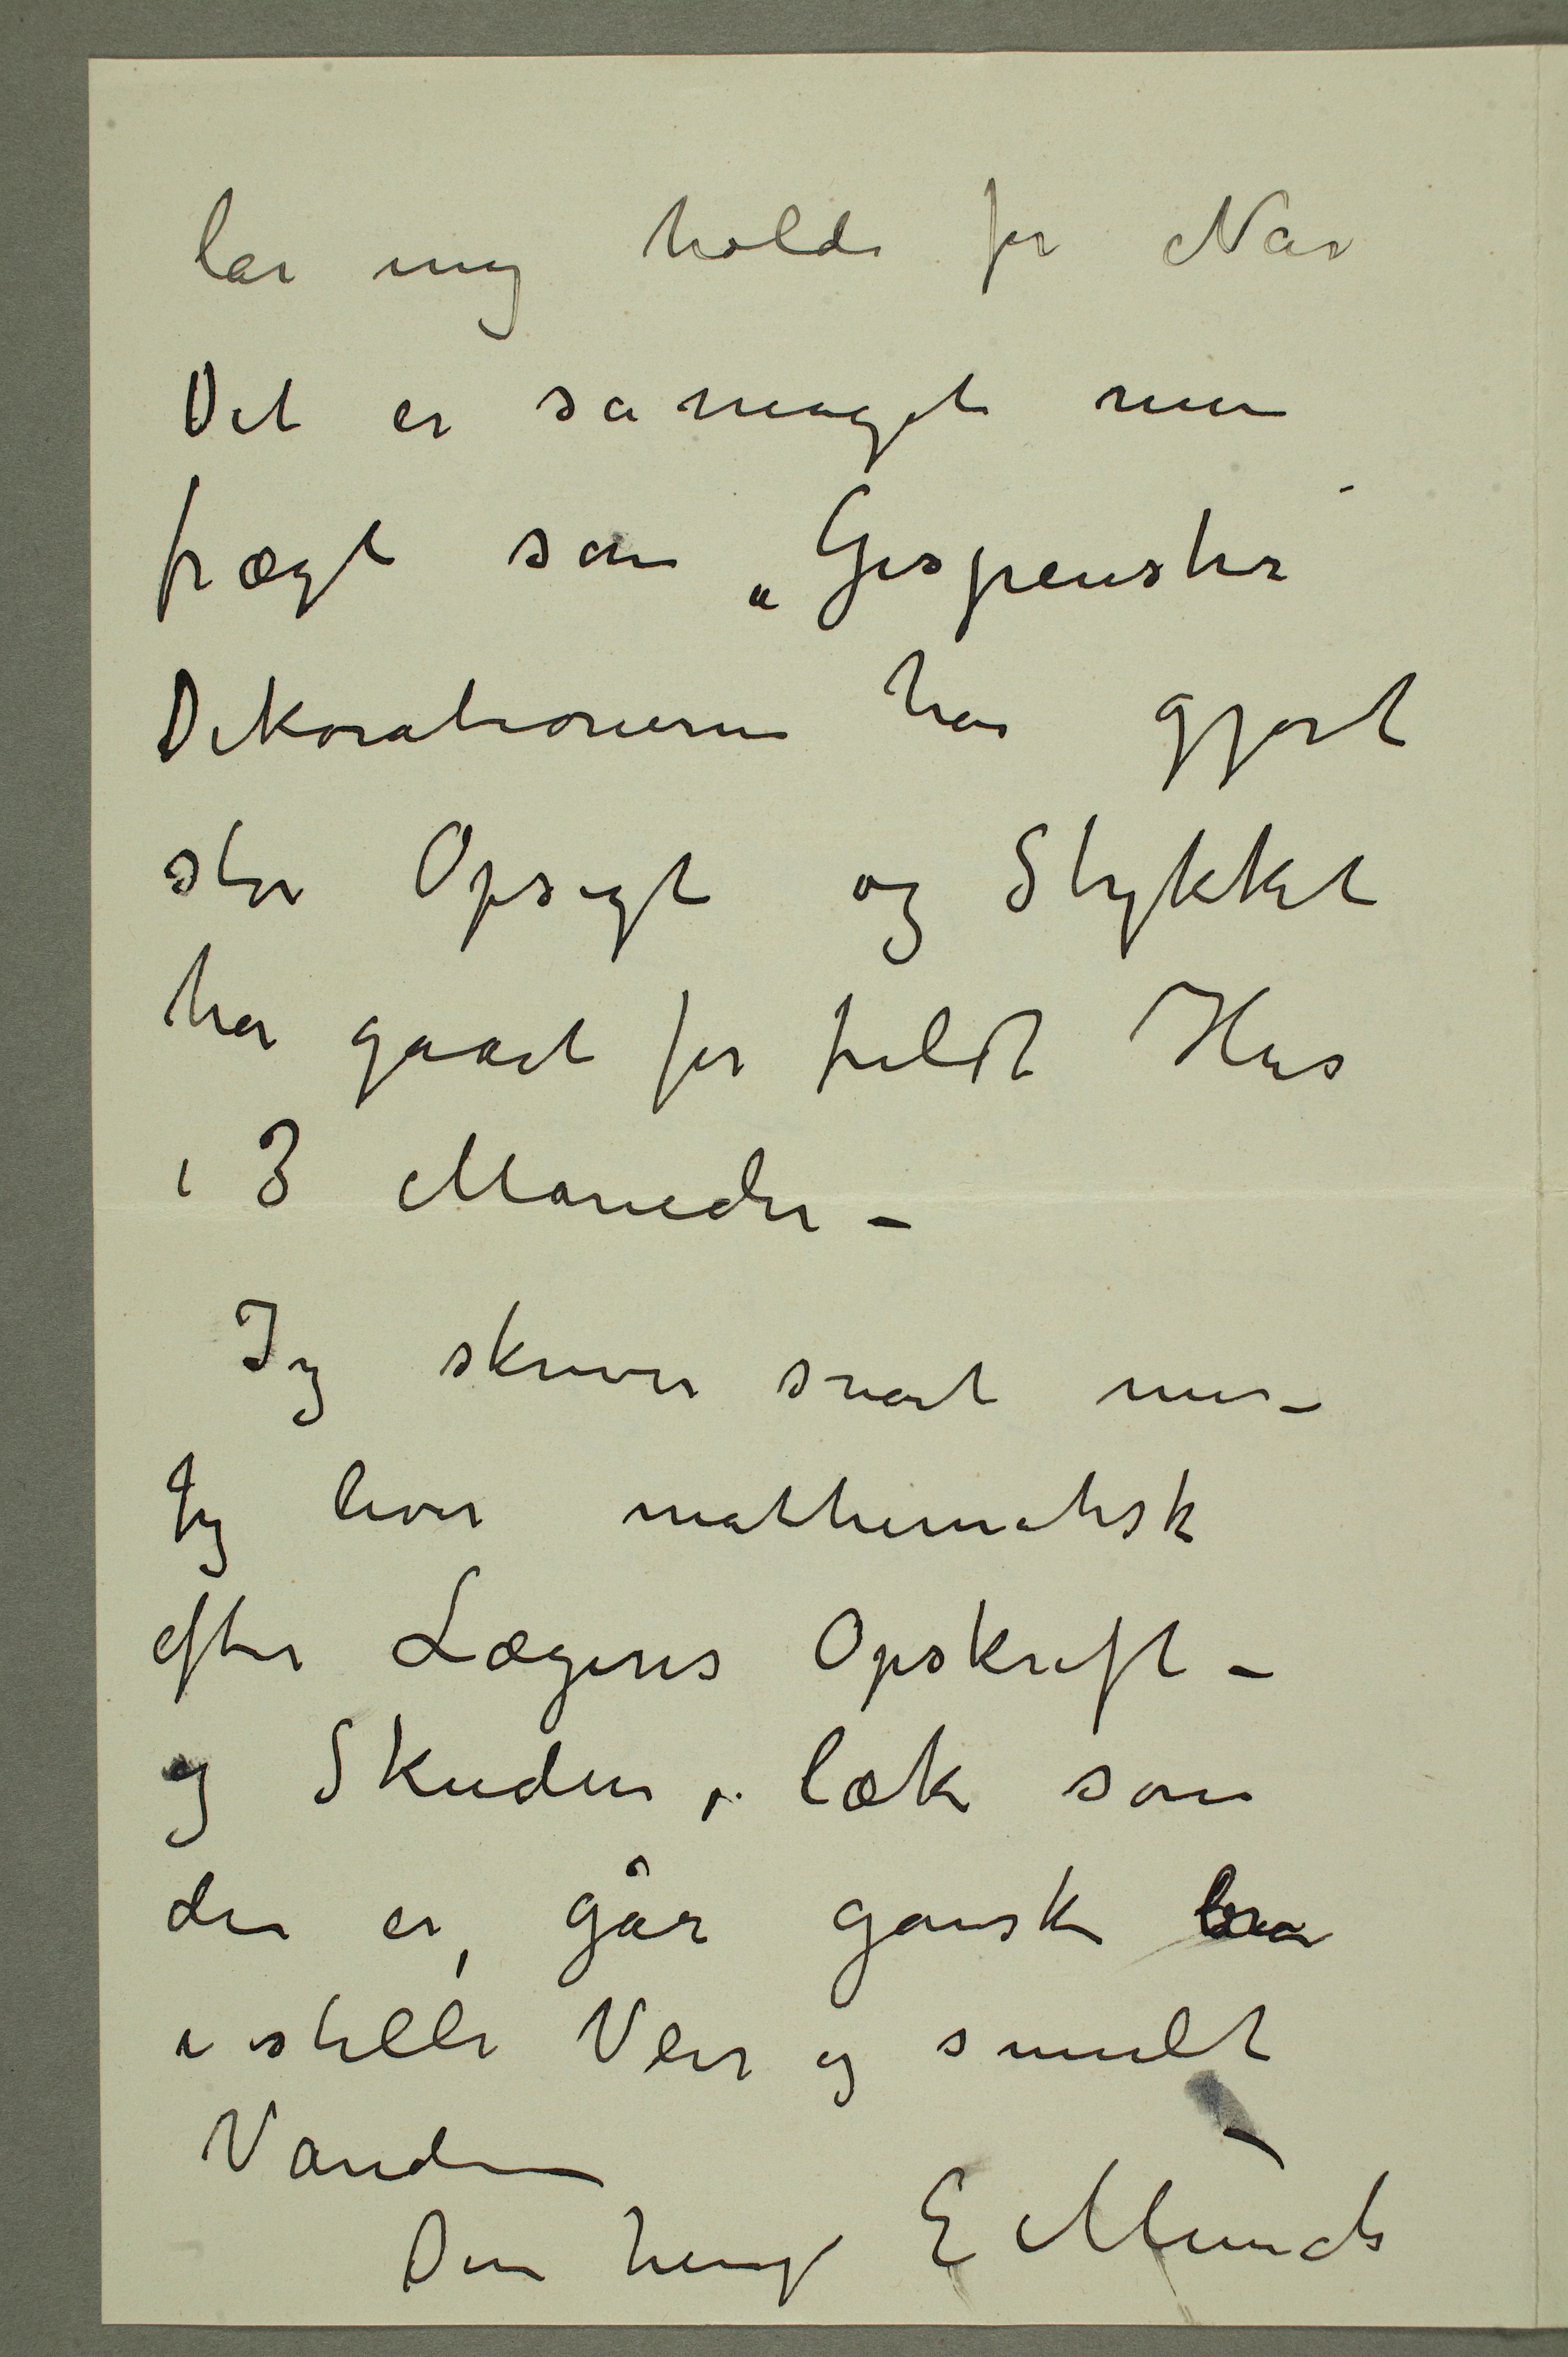 lar mig holde for Nar
Det er så meget mer
frægt som „Gespenster"
Dekorationerne har gjort
stor Opsigt og Stykket
har gaaet for fuldt Hus
i 3 Måneder –
Jeg skriver snart mer –
Jeg lever mathematisk
efter Lægens Opskrift –
og Skuden, læk som
den er, går ganske bra
i stille Veir og smult
Vande –
Din heng. E Munch